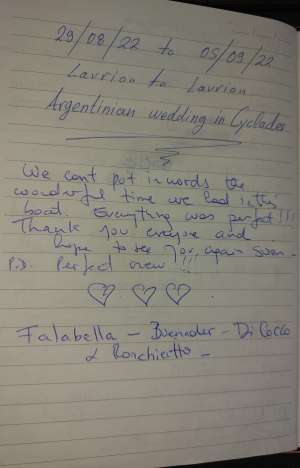 29/08/22 to 05/09/22
Lavrion to Lavrion
Argentinian wedding in Cyclades
We can't put in words the
wonderful time we had in this
boat. Everything was perfect!!!
Thank you everyone and
hope to see you again soon -
P.D. Perfect crew!!!
Falabella - - Di Cocco
& Ronchietto -